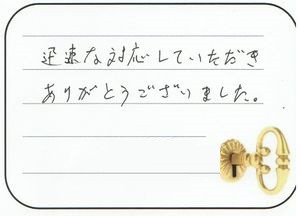 迅速な対応していただき
ありがとうございました。